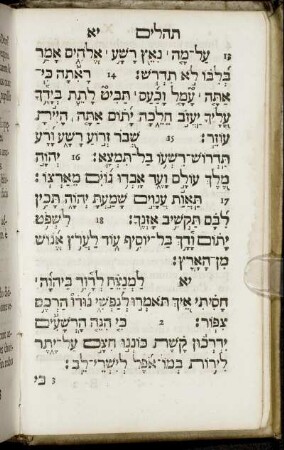 תהלים יא
13 עַל־מֶה׀ נִאֵץ רָשָׁע׀ אֱלֹהִים אָמַר
בְּלִבּוֹ לֹא תִדְרֹשׁ׃ 14 רָאִתָה כִּי־
אַתָּה׀ עָמָל וָכַעַס׀ תַּבִּיט לָתֵת בְּיָדֶךָ
עָלֶיךָ יַעֲזֹב חֵלֵכָה יָתוֹם אַתָּה׀ הָיִיתָ
עוֹזֵר׃ 15 שְׁבֹר זְרוֹעַ רָשָׁע וָרָע
תִּדְרוֹשׁ־רִשְׁעוֹ בַל־תִּמְצָא׃ 16 יְהוָה
מֶלֶךְ עוֹלָם וָעֶד אָבְדוּ גוֹיִם מֵאַרְצוֹ׃
17 תַּאֲוַת עֲנָוִים שָׁמַעְתָּ יְהוָה תָּכִין
לִבָּם תַּקְשִׁיב אָזְנֶךָ׃ 18 לִשְׁפֹּט
יָתוֹם וָדָךְ בַּל־יוֹסִיף עוֹד לַעֲרֹץ אֱנוֹשׁ
מִן־הָאָרֶץ׃
יא לַמְנַצֵּחַ לְדָוִד בַּיהוָה׀
חָסִיתִי אֵיךְ תֹּאמְרוּ לְנַפְשִׁי נוּדוֹ הַרְכֶם
צִפּוֹר׃ 2 כִּי הִנֵּה הָרְשָׁעִים
יִדְרְכוּן קֶשֶׁת כּוֹנְנוּ חִצָּם עַל־יֶתֶר
לִירוֹת בְּמוֹ־אֹפֶל לְיִשְׁרֵי־לֵב׃
3 כִּי